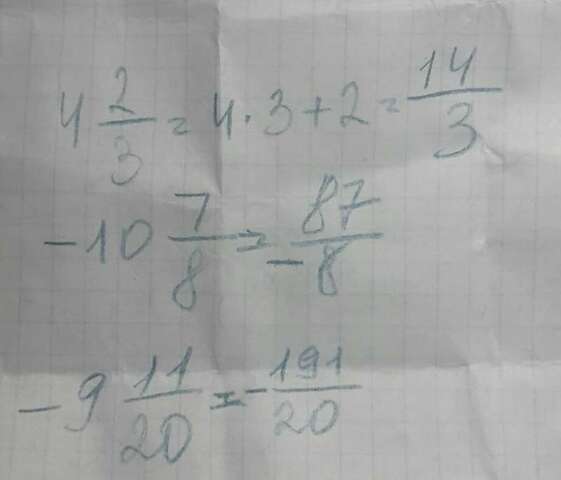 4 2/3 = 4·3+2 = 14/3
-10 7/8 = -87/8
-9 11/20 = -191/20